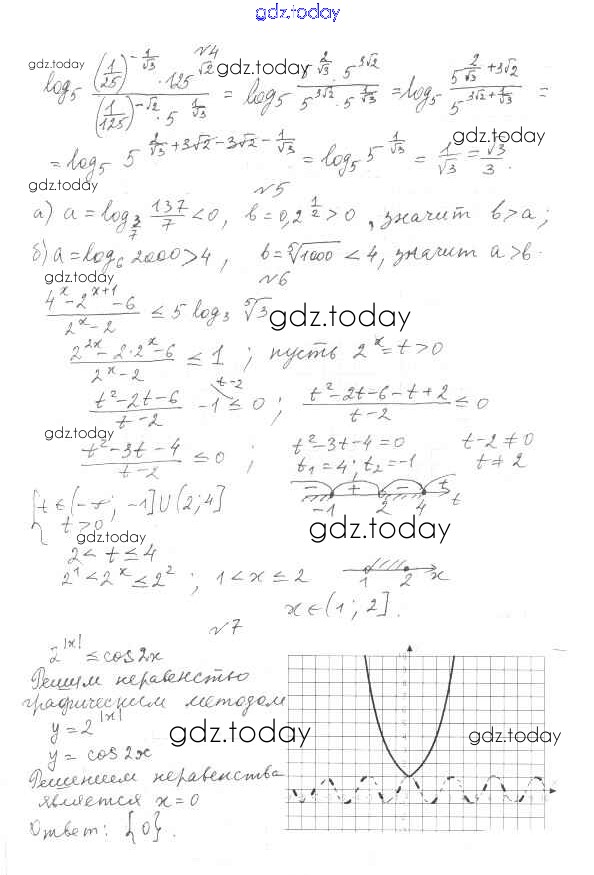 gdz.today
№4
gdz.today
log₅ ((1/25)^(-1/√3) · 125^(√2)) / ((1/125)^(-√2) · 5^(1/√3)) = log₅ (5^(2/√3) · 5^(3√2)) / (5^(3√2) · 5^(1/√3)) = log₅ 5^(2/√3 + 3√2) / 5^(3√2 + 1/√3) =
gdz.today
gdz.today
= log₅ 5^(2/√3 + 3√2 - 3√2 - 1/√3) = log₅ 5^(1/√3) = 1/√3 = √3/3.
gdz.today
№5
а) a = log_(3/7) 137/7 < 0, b = 0,2^(1/2) > 0, значит b > a;
б) a = log₆ 2000 > 4, b = ⁵√1000 < 4, значит a > b.
gdz.today
№6
(4^x - 2^(x+1) - 6) / (2^x - 2) ≤ 5 log₃ ⁵√3
gdz.today
(2^(2x) - 2·2^x - 6) / (2^x - 2) ≤ 1 ; пусть 2^x = t > 0
(t² - 2t - 6) / (t - 2) - 1 ^(t-2) ≤ 0 ; (t² - 2t - 6 - t + 2) / (t - 2) ≤ 0
gdz.today
(t² - 3t - 4) / (t - 2) ≤ 0 ; t² - 3t - 4 = 0 t - 2 ≠ 0
t₁ = 4; t₂ = -1 t ≠ 2
{ t ∈ (-∞; -1] ∪ (2; 4]
t > 0
- + - + t
-1 2 4
gdz.today
gdz.today
2 < t ≤ 4
2¹ < 2^x ≤ 2² ; 1 < x ≤ 2 1 2 x
x ∈ (1; 2].
№7
2^|x| ≤ cos 2x
Решим неравенство
графическим методом
y = 2^|x|
gdz.today
gdz.today
y = cos 2x
Решением неравенства
является x = 0
Ответ: {0}.